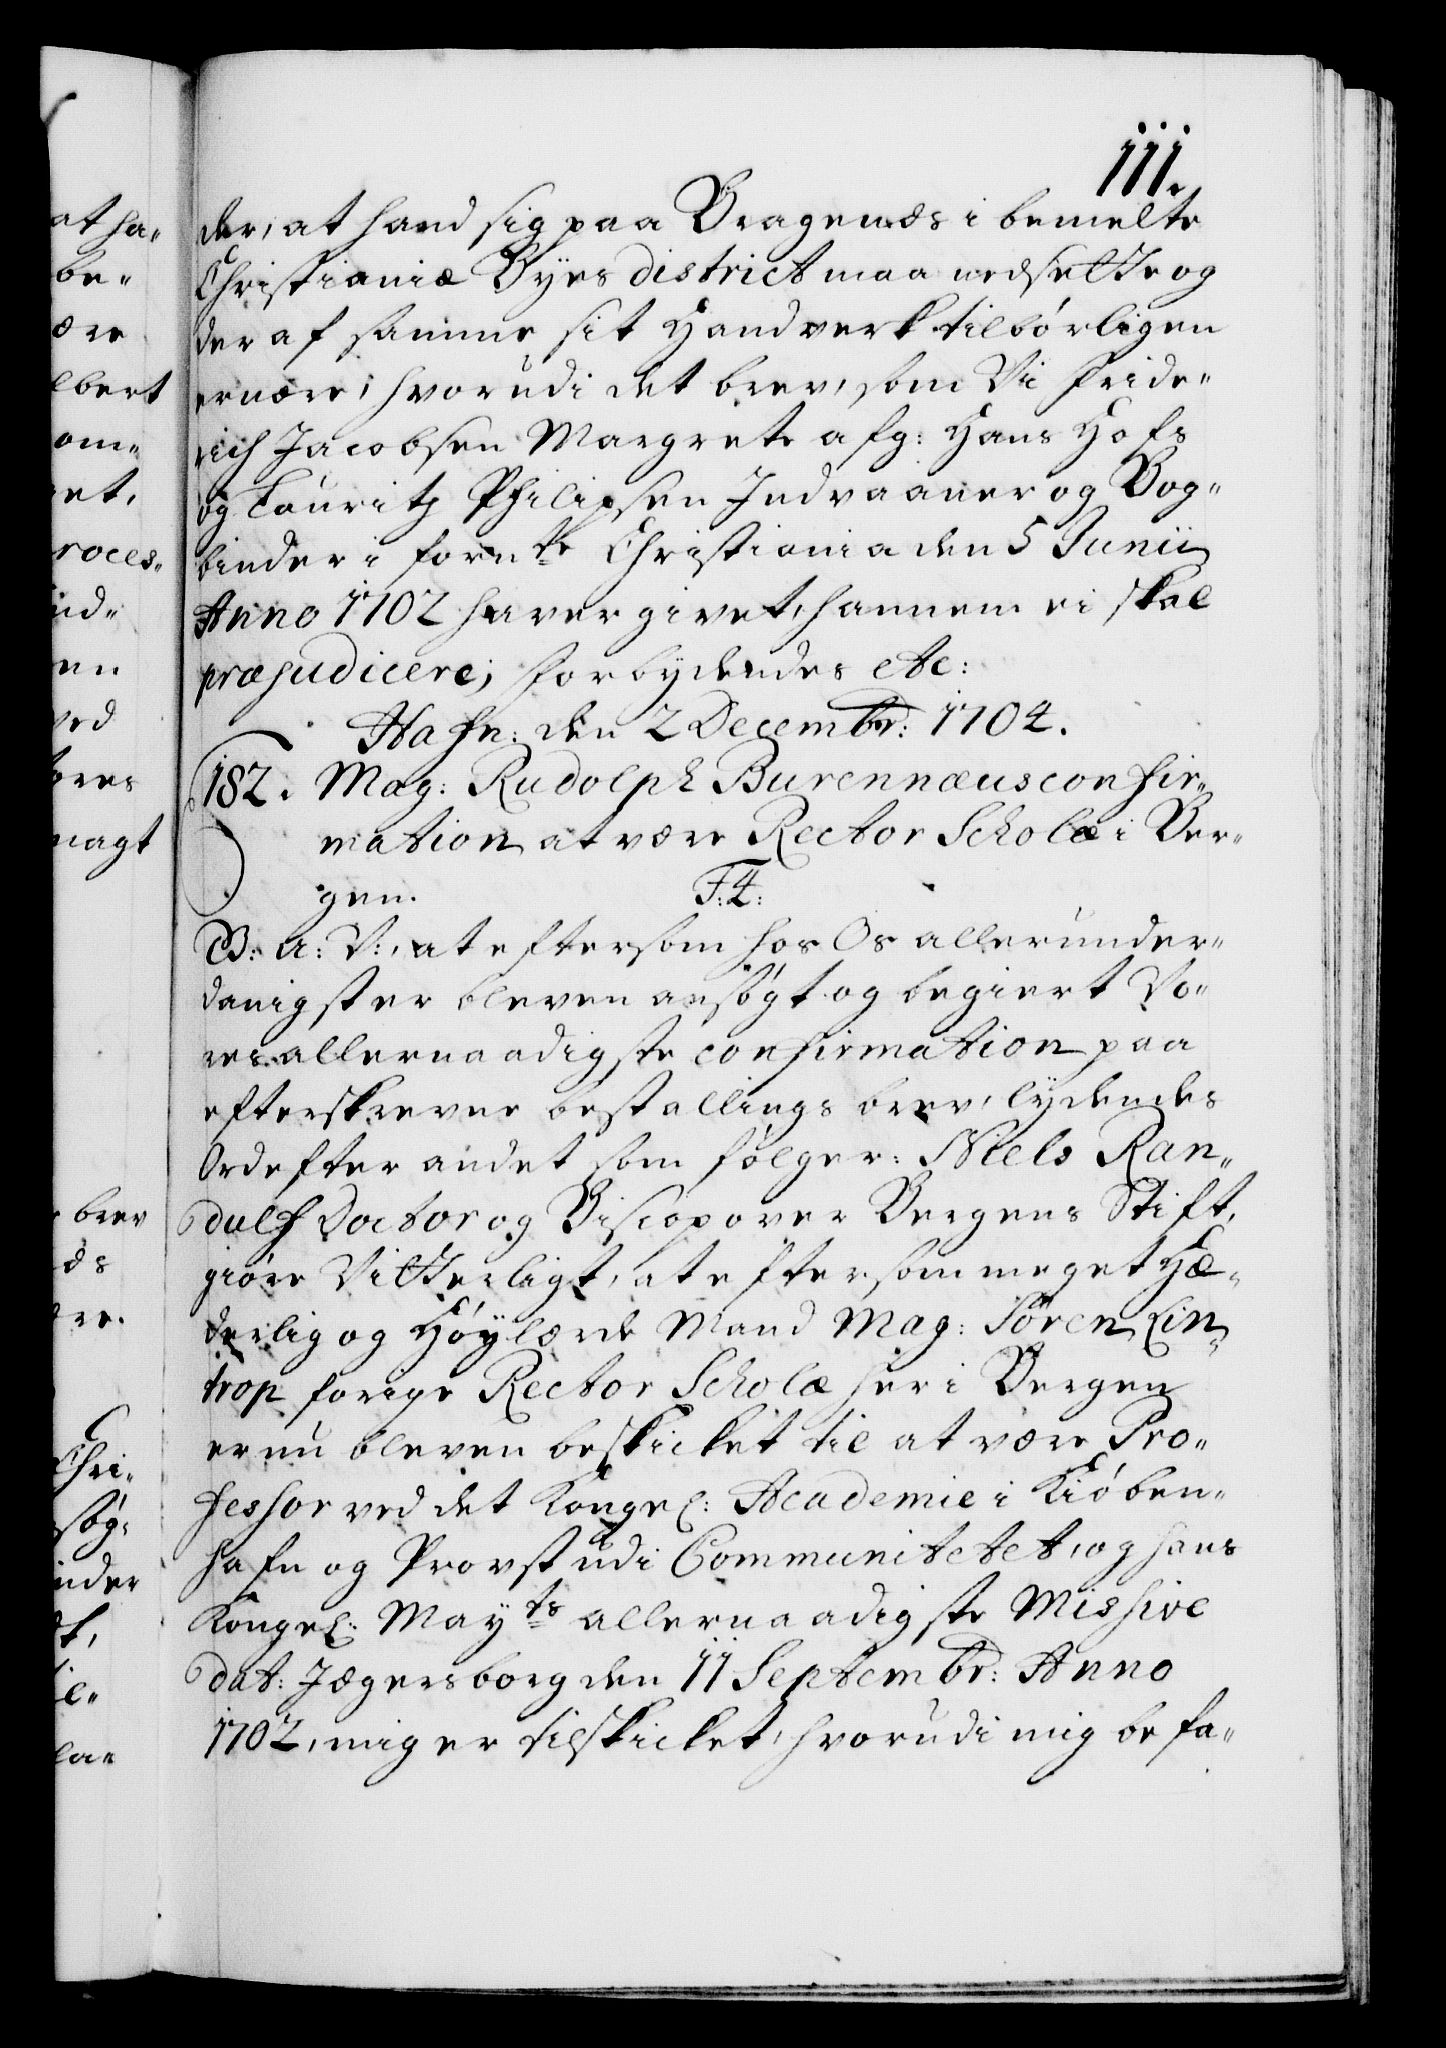 111.
at ha-
be-
ære
lbert
om-
et,
roces-
ind-
en
ved
ores
magt
brev
ds
ere.
Chri-
søg-
inder
la-
der, at hand sig paa Bragenæs i bemelte
Christianiæ Byes district maa nedsette og
der af samme sit Handverk tilbørligen
ernære; hvorudi det brev, som Vi Fride-
rich Jacobsen Margrete afg: Hans Hofs
og Lauritz Philipsen Indvaaner og Bog-
binder i fornte Christiania den 5 Junii
Anno 1702 haver givet, hannem ei skal
præjudicere; Forbydendes etc:
Hafn: den 2 Decembr: 1704.
182. Mag: Rudolph Burennæus confir-
mation at være Rector Scholæ i Ber-
gen. F:4:
G: A: V:, at eftersom hos Os allerunder-
danigst er bleven ansøgt og begiert Vo-
res allernaadigste confirmation paa
efterskrevne bestallings brev, lydendes
Ord efter andet som følger: Niels Ran-
dulf Doctor og Biscop over Bergens Stift,
giøre Vitterligt, at eftersom meget Hæ-
derlig og Høylærde Mand Mag: Søren Lin-
trop forige Rector Scholæ her i Bergen
er nu bleven beskicket til at være Pro-
fessor ved det Kongel: Academie i Kiøben-
hafn og Provst udi Communitetet, og hans
Kongel: Mayts allernaadigste Missive
dat: Jægersborg den 11 Septembr: Anno
1702, mig er tilskicket, hvorudi mig befa-